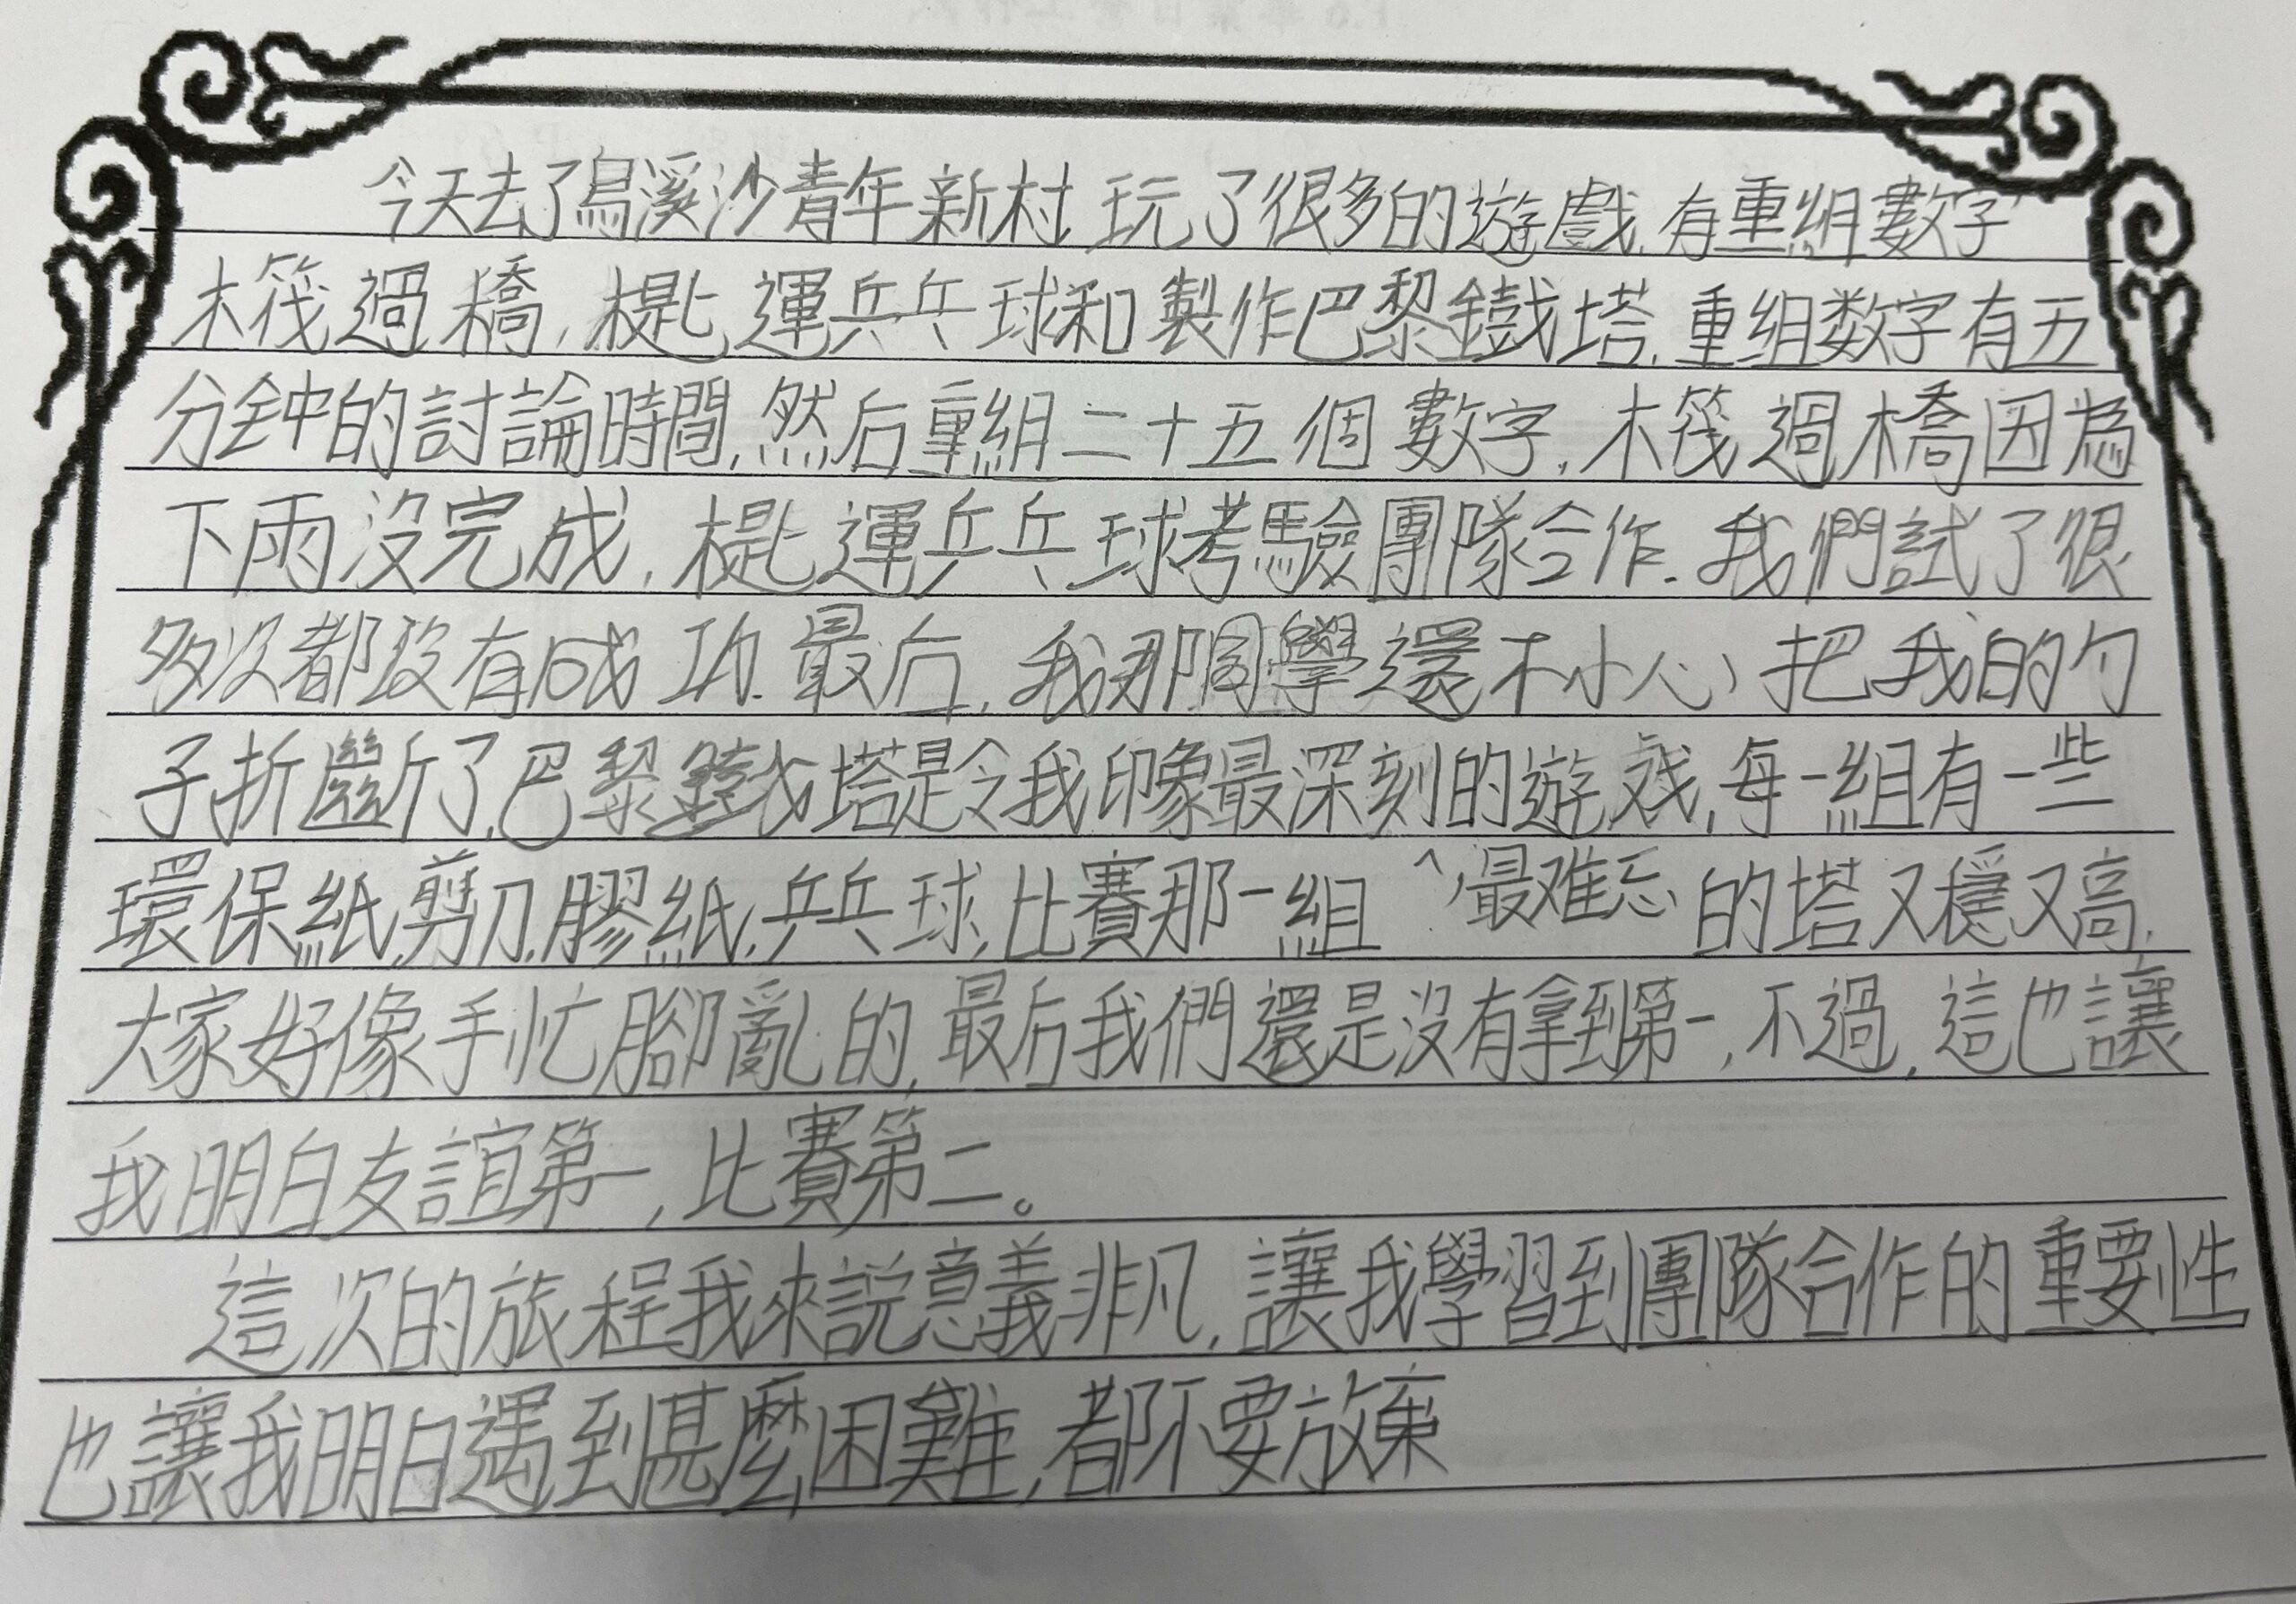 今天去了烏溪沙青年新村.玩了很多的遊戲.有重組數字
木筏過橋,匙運乒乓球和製作巴黎鐵塔.重组数字有五
分钟的討論時間,然后重組二十五個數字,木筏過木橋因為
下雨没完成,匙運乒乓球考驗團隊合作.我們試了很
多次都没有成功.最后,我那同學還不小心把我的勺
子折斷了,巴黎鐵塔是令我印象最深刻的遊戏,每一組有一些
環保紙,剪刀,膠紙,乒乓球,比賽那一組^,最难忘的塔又穩又高.
大家好像手忙腳亂的,最后我們還是没有拿到第一,不過,這也讓
我明白友誼第一,比賽第二。
這次的旅程我來說意義非凡,讓我學習到團隊合作的重要性
也讓我明白遇到甚麼困難,都不要放棄